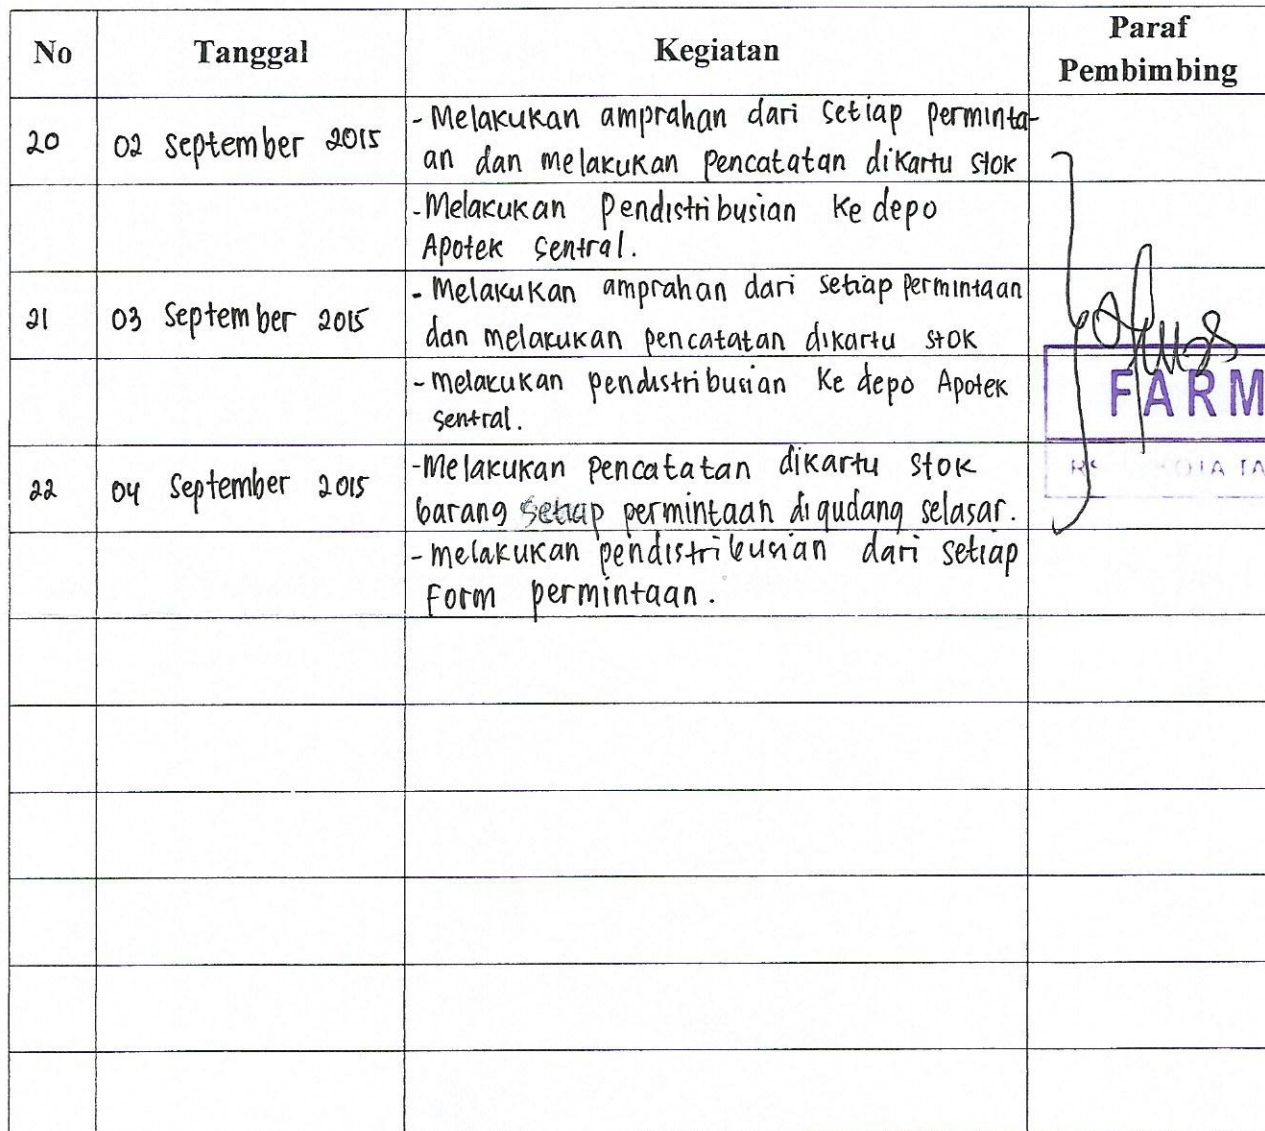 No Tanggal Kegiatan Paraf Pembimbing
20 02 September 2015 - Melakukan amprahan dari setiap perminta-
an dan melakukan pencatatan dikartu stok
- Melakukan pendistribusian ke depo
Apotek sentral.
21 03 September 2015 - Melakukan amprahan dari setiap permintaan
dan melakukan pencatatan dikartu stok
- melakukan pendistribusian ke depo Apotek
sentral.
FARM
22 04 September 2015 - Melakukan pencatatan dikartu stok
barang setiap permintaan digudang selasar.
- melakukan pendistribusian dari setiap
Form permintaan.